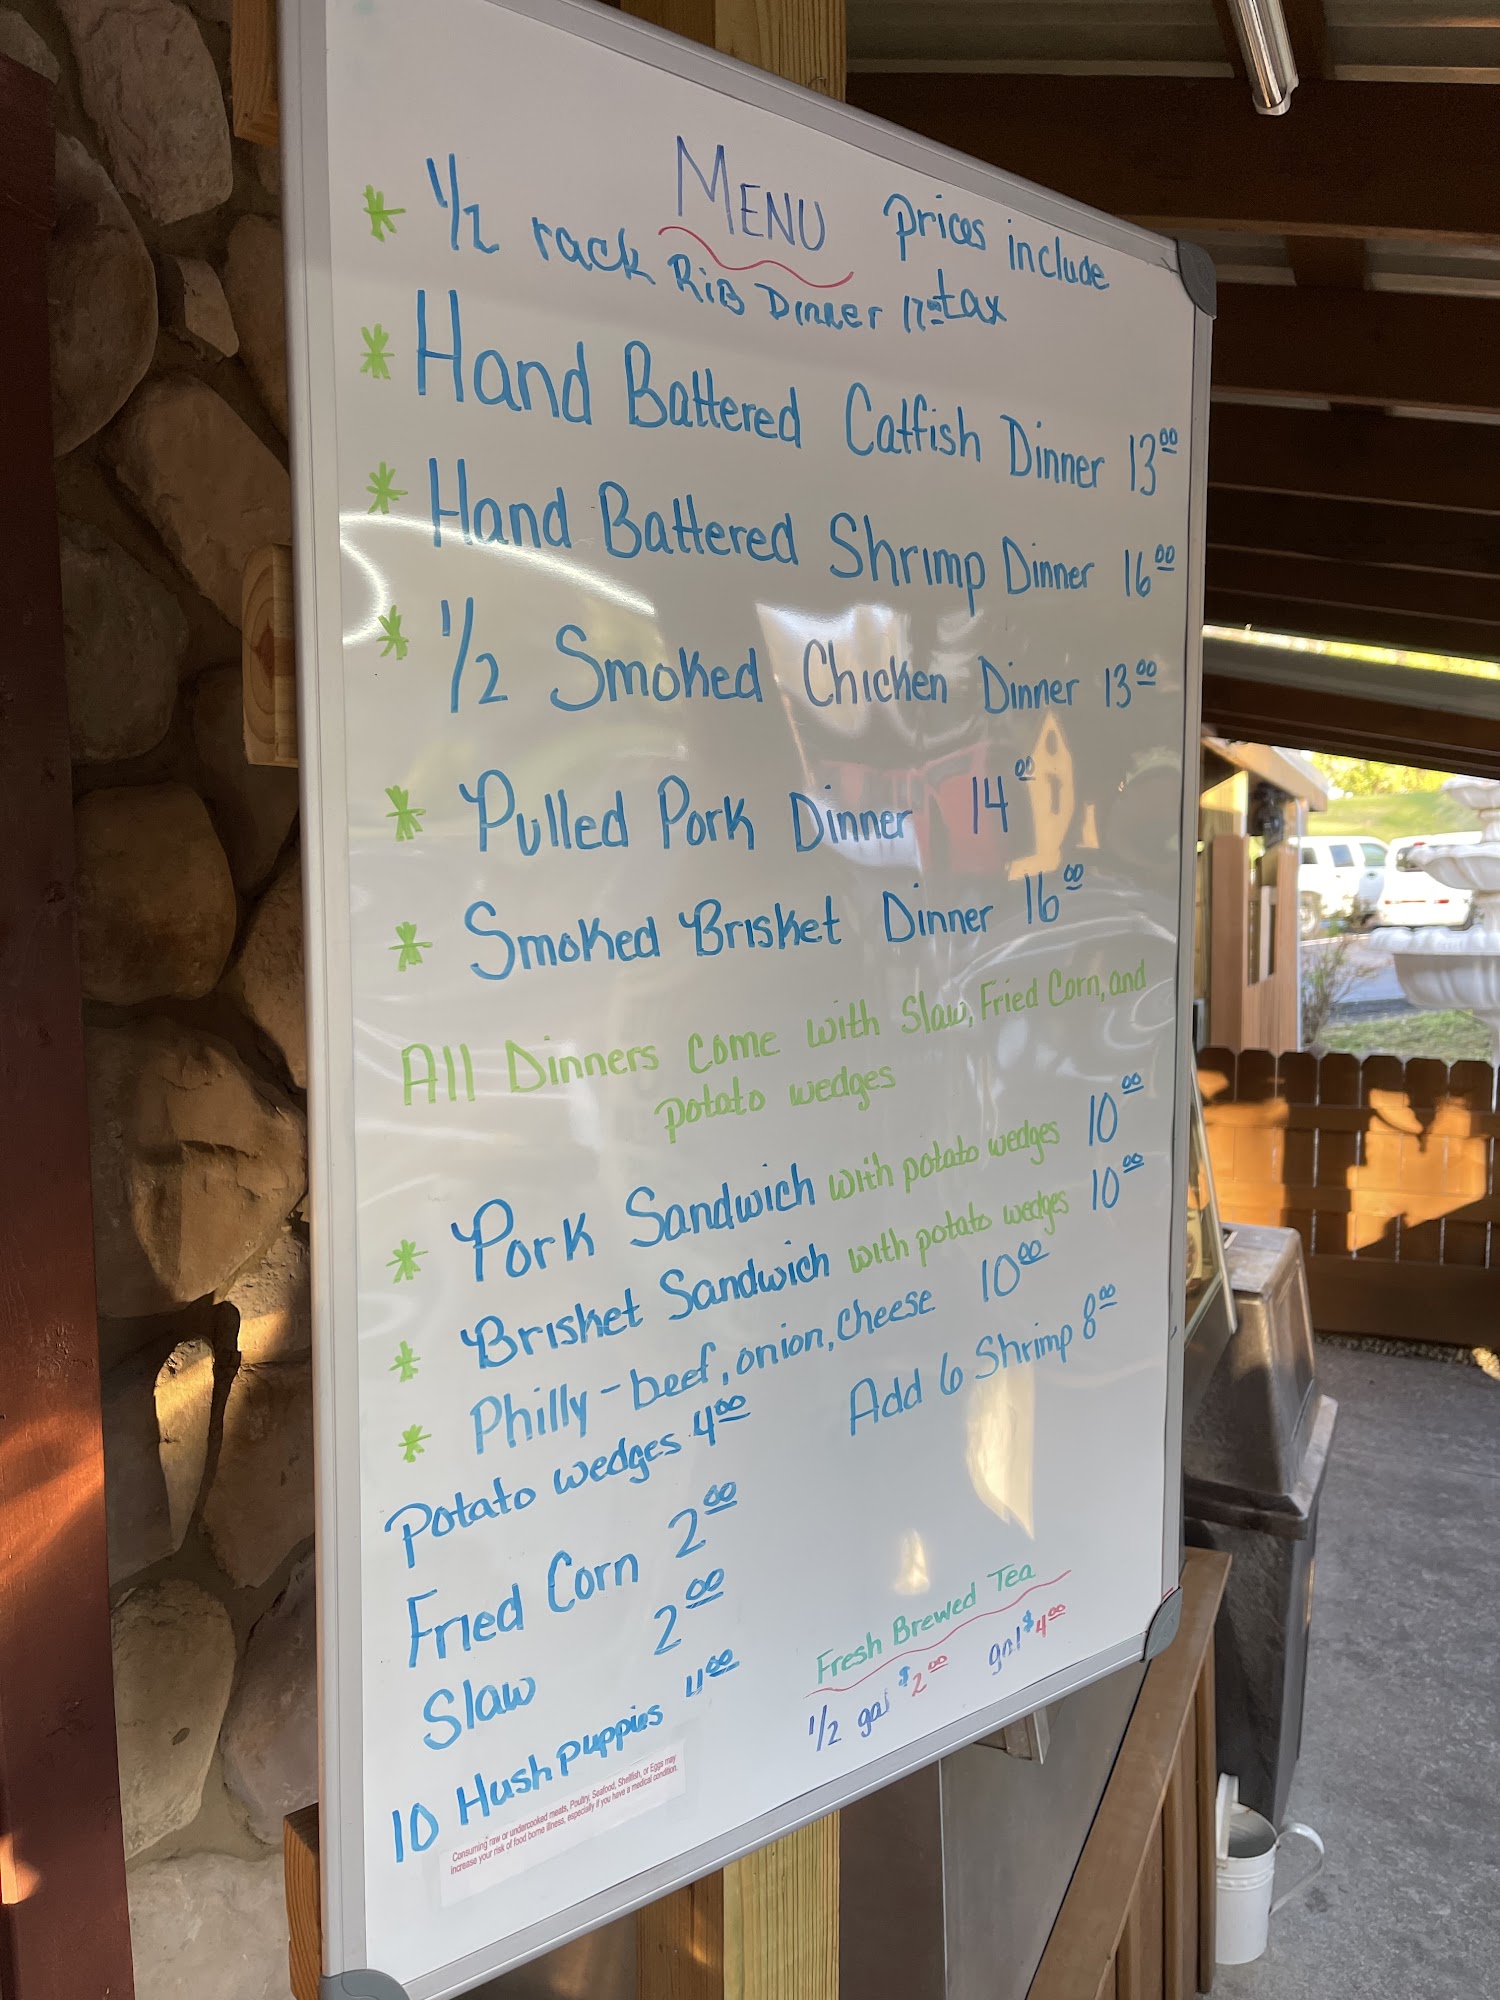 MENU
Prices include
tax
* 1/2 rack RIB Dinner 17.00
* Hand Battered Catfish Dinner 13.00
* Hand Battered Shrimp Dinner 16.00
* 1/2 Smoked Chicken Dinner 13.00
* Pulled Pork Dinner 14.00
* Smoked Brisket Dinner 16.00
All Dinners come with Slaw, Fried Corn, and
potato wedges
* Pork Sandwich with potato wedges 10.00
* Brisket Sandwich with potato wedges 10.00
* Philly - beef, onion, cheese 10.00
Potato wedges 4.00
Add 6 Shrimp 8.00
Fried Corn 2.00
Slaw 2.00
10 Hushpuppies 4.00
Fresh Brewed Tea
1/2 gal $2.00 gal $4.00
Consuming raw or undercooked meats, Poultry, Seafood, Shellfish, or Eggs may
increase your risk of food borne illness, especially if you have a medical condition.